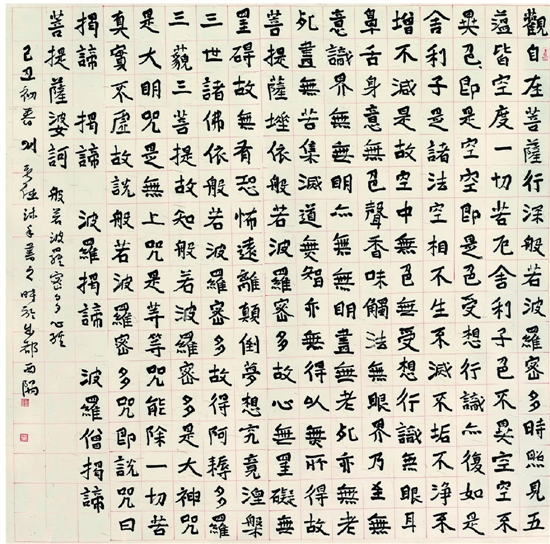 觀自在菩薩行深般若波羅密多時照見五
蘊皆空度一切苦厄舍利子色不異空空不
異色即是空空即是色受想行識亦復如是
舍利子是諸法空相不生不滅不垢不淨不
增不減是故空中無色無受想行識無眼耳
鼻舌身意無色聲香味觸法無眼界乃至無
意識界無無明亦無無明盡無老死亦無老
死盡無苦集滅道無智亦無得以無所得故
菩提薩埵依般若波羅密多故心無罣礙無
罣碍故無有恐怖遠離顛倒夢想究竟涅槃
三世諸佛依般若波羅密多故得阿耨多羅
三藐三菩提故知般若波羅密多是大神咒
是大明咒是無上咒是等等咒能除一切苦
真實不虛故說般若波羅密多咒即說咒曰
揭諦 揭諦 波羅揭諦 波羅僧揭諦
菩提薩婆訶 般若波羅密多心經
己丑初春 沐手書之時於成都西隅